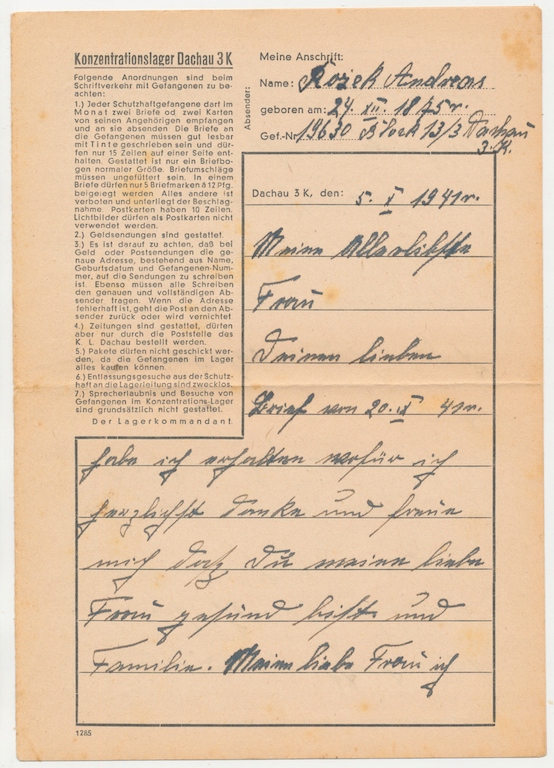 Konzentrationslager Dachau 3 K
Folgende Anordnungen sind beim
Schriftverkehr mit Gefangenen zu be-
achten:
1.) Jeder Schutzhaftgefangene darf im
Monat zwei Briefe od. zwei Karten
von seinen Angehörigen empfangen
und an sie absenden. Die Briefe an
die Gefangenen müssen gut lesbar
mit Tinte geschrieben sein und dür-
fen nur 15 Zeilen auf einer Seite ent-
halten. Gestattet ist nur ein Briefbo-
gen normaler Größe. Briefumschläge
müssen ungefüttert sein. In einem
Briefe dürfen nur 5 Briefmarken à 12 Pfg.
beigelegt werden. Alles andere ist
verboten und unterliegt der Beschlag-
nahme. Postkarten haben 10 Zeilen.
Lichtbilder dürfen als Postkarten nicht
verwendet werden.
2.) Geldsendungen sind gestattet.
3.) Es ist darauf zu achten, daß bei
Geld oder Postsendungen die ge-
naue Adresse, bestehend aus Name,
Geburtsdatum und Gefangenen-Num-
mer, auf die Sendungen zu schreiben
ist. Ebenso müssen alle Schreiben
den genauen und vollständigen Ab-
sender tragen. Wenn die Adresse
fehlerhaft ist, geht die Post an den Ab-
sender zurück oder wird vernichtet
4.) Zeitungen sind gestattet, dürfen
aber nur durch die Poststelle des
K. L. Dachau bestellt werden.
5.) Pakete dürfen nicht geschickt wer-
den, da die Gefangenen im Lager
alles kaufen können.
6.) Entlassungsgesuche aus der Schutz-
haft an die Lagerleitung sind zwecklos.
7.) Sprecherlaubnis und Besuche von
Gefangenen im Konzentrations-Lager
sind grundsätzlich nicht gestattet.
Der Lagerkommandant
Absender:
Meine Anschrift:
Name: Rożek Andreas
geboren am: 24. XII. 1875 r.
Gef.-Nr. 19630 Block 13/3 Dachau
3. K.
Dachau 3 K, den: 5. X 1941 r.
Meine Allerliebste
Frau
Deinen lieben
Brief von 20. IX 41 r.
habe ich erhalten wofür ich
herzlichst danke und freue
mich daß Du meine liebe
Frau gesund bist und
Familie. Meine liebe Frau ich
1285